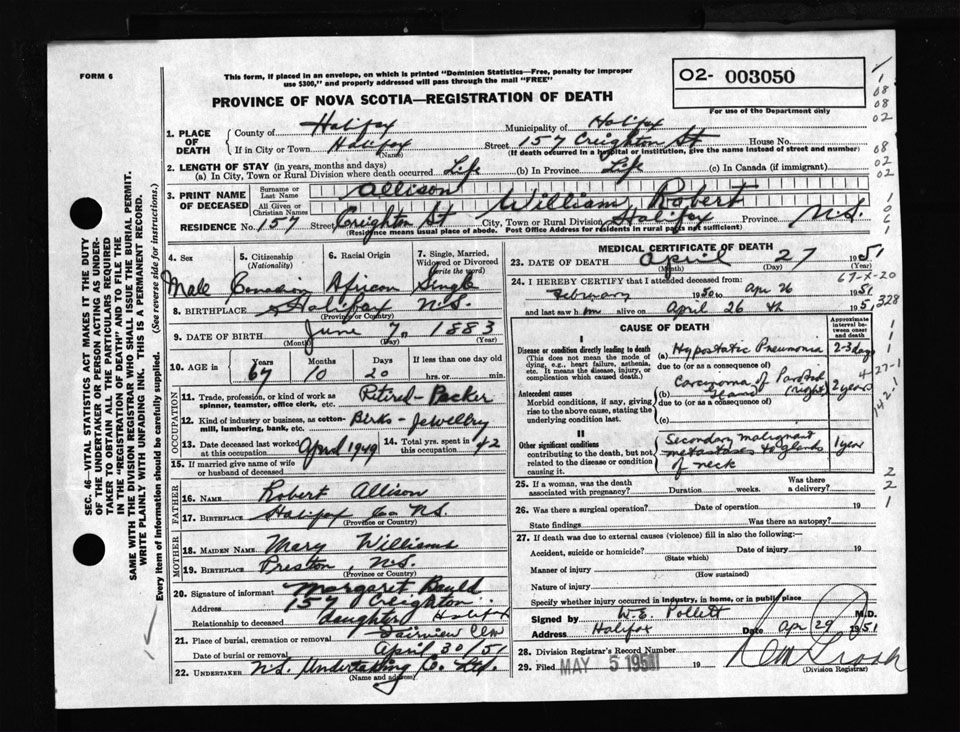 FORM 6
This form, if placed in an envelope, on which is printed "Dominion Statistics—Free, penalty for improper
use $300," and properly addressed will pass through the mail "FREE"
O2- 003050
For use of the Department only
PROVINCE OF NOVA SCOTIA—REGISTRATION OF DEATH
1. PLACE OF DEATH { County of Halifax Municipality of Halifax
If in City or Town Halifax (Name) Street 157 Creighton St House No.
(If death occurred in a hospital or institution, give the name instead of street and number)
2. LENGTH OF STAY (in years, months and days)
(a) In City, Town or Rural Division where death occurred Life (b) In Province Life (c) In Canada (if immigrant)
3. PRINT NAME OF DECEASED { Surname or Last Name Allison
All Given or Christian Names William Robert
RESIDENCE No. 157 Street Creighton St City, Town or Rural Division Halifax Province N.S.
(Residence means usual place of abode. Post Office Address for residents in rural parts not sufficient)
4. Sex
5. Citizenship (Nationality)
6. Racial Origin
7. Single, Married, Widowed or Divorced (write the word)
Male Canadian African Single
8. BIRTHPLACE Halifax N.S.
(Province or Country)
9. DATE OF BIRTH June 7, 1883
(Month) (Day) (Year)
10. AGE in Years Months Days If less than one day old
67 10 20 hrs. or min.
OCCUPATION
11. Trade, profession, or kind of work as spinner, teamster, office clerk, etc. Retired - Packer
12. Kind of industry or business, as cotton-mill, lumbering, bank, etc. Birks - Jewellry
13. Date deceased last worked at this occupation April 1949 14. Total yrs. spent in this occupation 42
15. If married give name of wife or husband of deceased
FATHER
16. NAME Robert Allison
17. BIRTHPLACE Halifax Co N.S.
(Province or Country)
MOTHER
18. MAIDEN NAME Mary Williams
19. BIRTHPLACE Preston, N.S.
(Province or Country)
20. Signature of informant Margaret Beuld
Address 157 Creighton
Halifax
Relationship to deceased daughter
21. Place of burial, cremation or removal Fairview Cem
Date of burial or removal April 30/51
22. UNDERTAKER N.S. Undertaking Co. Ltd.
(Name and address)
MEDICAL CERTIFICATE OF DEATH
23. DATE OF DEATH April 27 1951
(Month) (Day) (Year)
24. I HEREBY CERTIFY that I attended deceased from:
February 1950 to Apr 26 1951
and last saw him alive on April 26 th 1951
CAUSE OF DEATH
Approximate interval between onset and death
I
Disease or condition directly leading to death
(This does not mean the mode of dying, e.g., heart failure, asthenia, etc. It means the disease, injury, or complication which caused death.)
(a) Hypostatic Pneumonia 2-3 days
due to (or as a consequence of)
Antecedent causes
Morbid conditions, if any, giving rise to the above cause, stating the underlying condition last.
(b) Carcinoma of Parotid gland (right) 2 years
due to (or as a consequence of)
(c)
II
Other significant conditions
contributing to the death, but not related to the disease or condition causing it.
Secondary malignant metastases to glands of neck 1 year
25. If a woman, was the death associated with pregnancy? Duration weeks. Was there a delivery?
26. Was there a surgical operation? Date of operation 19
State findings Was there an autopsy?
27. If death was due to external causes (violence) fill in also the following:
Accident, suicide or homicide? Date of injury 19
(State which)
Manner of injury
(How sustained)
Nature of injury
Specify whether injury occurred in industry, in home, or in public place
Signed by W.E. Pollett M.D.
Address Halifax Date Apr 29 1951
28. Division Registrar's Record Number
29. Filed MAY 5 1951 19
(Division Registrar)
SEC. 46—VITAL STATISTICS ACT MAKES IT THE DUTY
OF THE UNDERTAKER OR PERSON ACTING AS UNDER-
TAKER TO OBTAIN ALL THE PARTICULARS REQUIRED
IN THE "REGISTRATION OF DEATH" AND TO FILE THE
SAME WITH THE DIVISION REGISTRAR WHO SHALL ISSUE THE BURIAL PERMIT.
WRITE PLAINLY WITH UNFADING INK. THIS IS A PERMANENT RECORD.
Every item of information should be carefully supplied. (See reverse side for instructions.)
08
08
02
08
02
02
67-X-20
328
4-27-1
1421
2
2
1